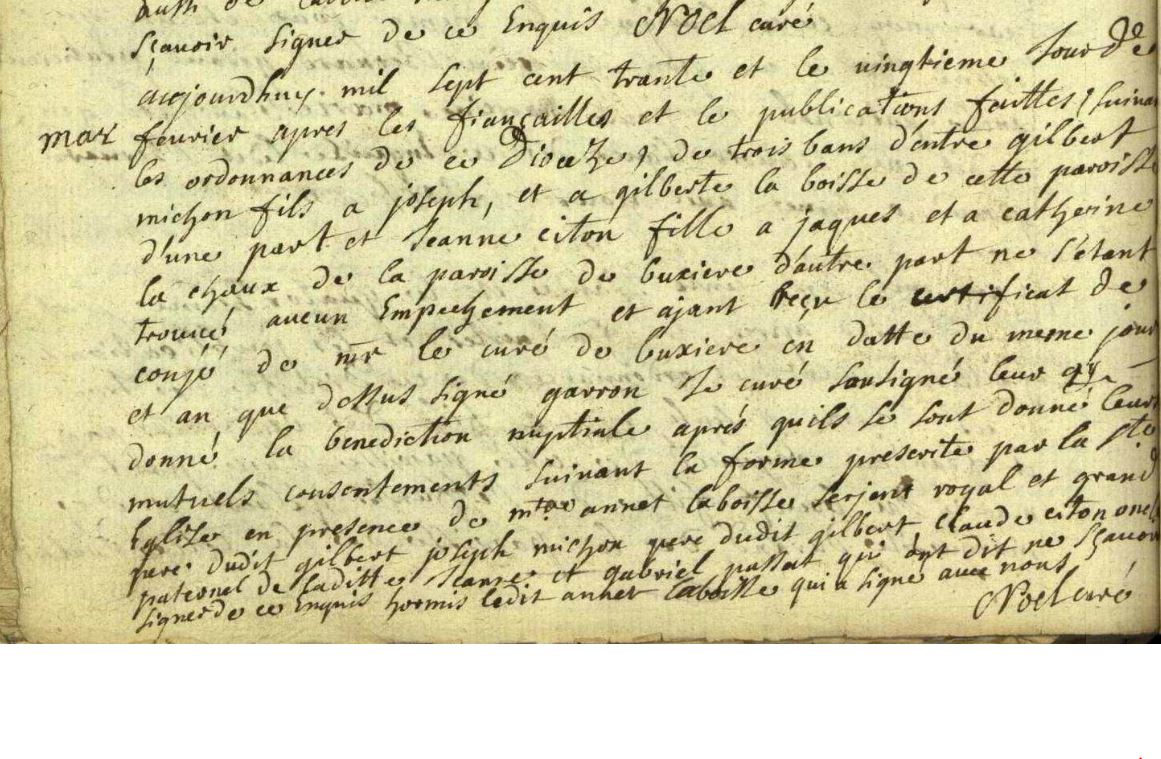 sçavoir signer de ce Enquis Noel curé
aujourdhuy mil sept cent trante et le vingtieme Jour de
mar fevrier apres les fiançailles et le publications faittes, suivant
les ordonnances de ce Diocèze, de trois bans d'entre gilbert
michon fils a joseph, et a gilberte la boisse de cette paroisse
d'une part et Jeanne citon fille a jaques et a catherine
la chaux de la paroisse de buxiere d'autre part ne s'étant
trouvé aucun Empechement et ajant reçu le certificat de
conjé de mr le curé de buxiere en datte du meme jour
et an que dessus signé garron Je curé sousigné leur ay
donné la benediction nuptiale aprés quils se sont donné leurs
mutuels consentements suivant la forme prescrite par la ste
Eglise en presence de mtre annet laboisse serjent royal et grand
pere dudit gilbert joseph michon pere dudit gilbert Claude citon oncle
paternel de laditte Jeanne et gabriel passat qui ont dit ne sçavoir
signer de ce Enquis hormis ledit annet laboisse qui a signe avec nous
Noel curé